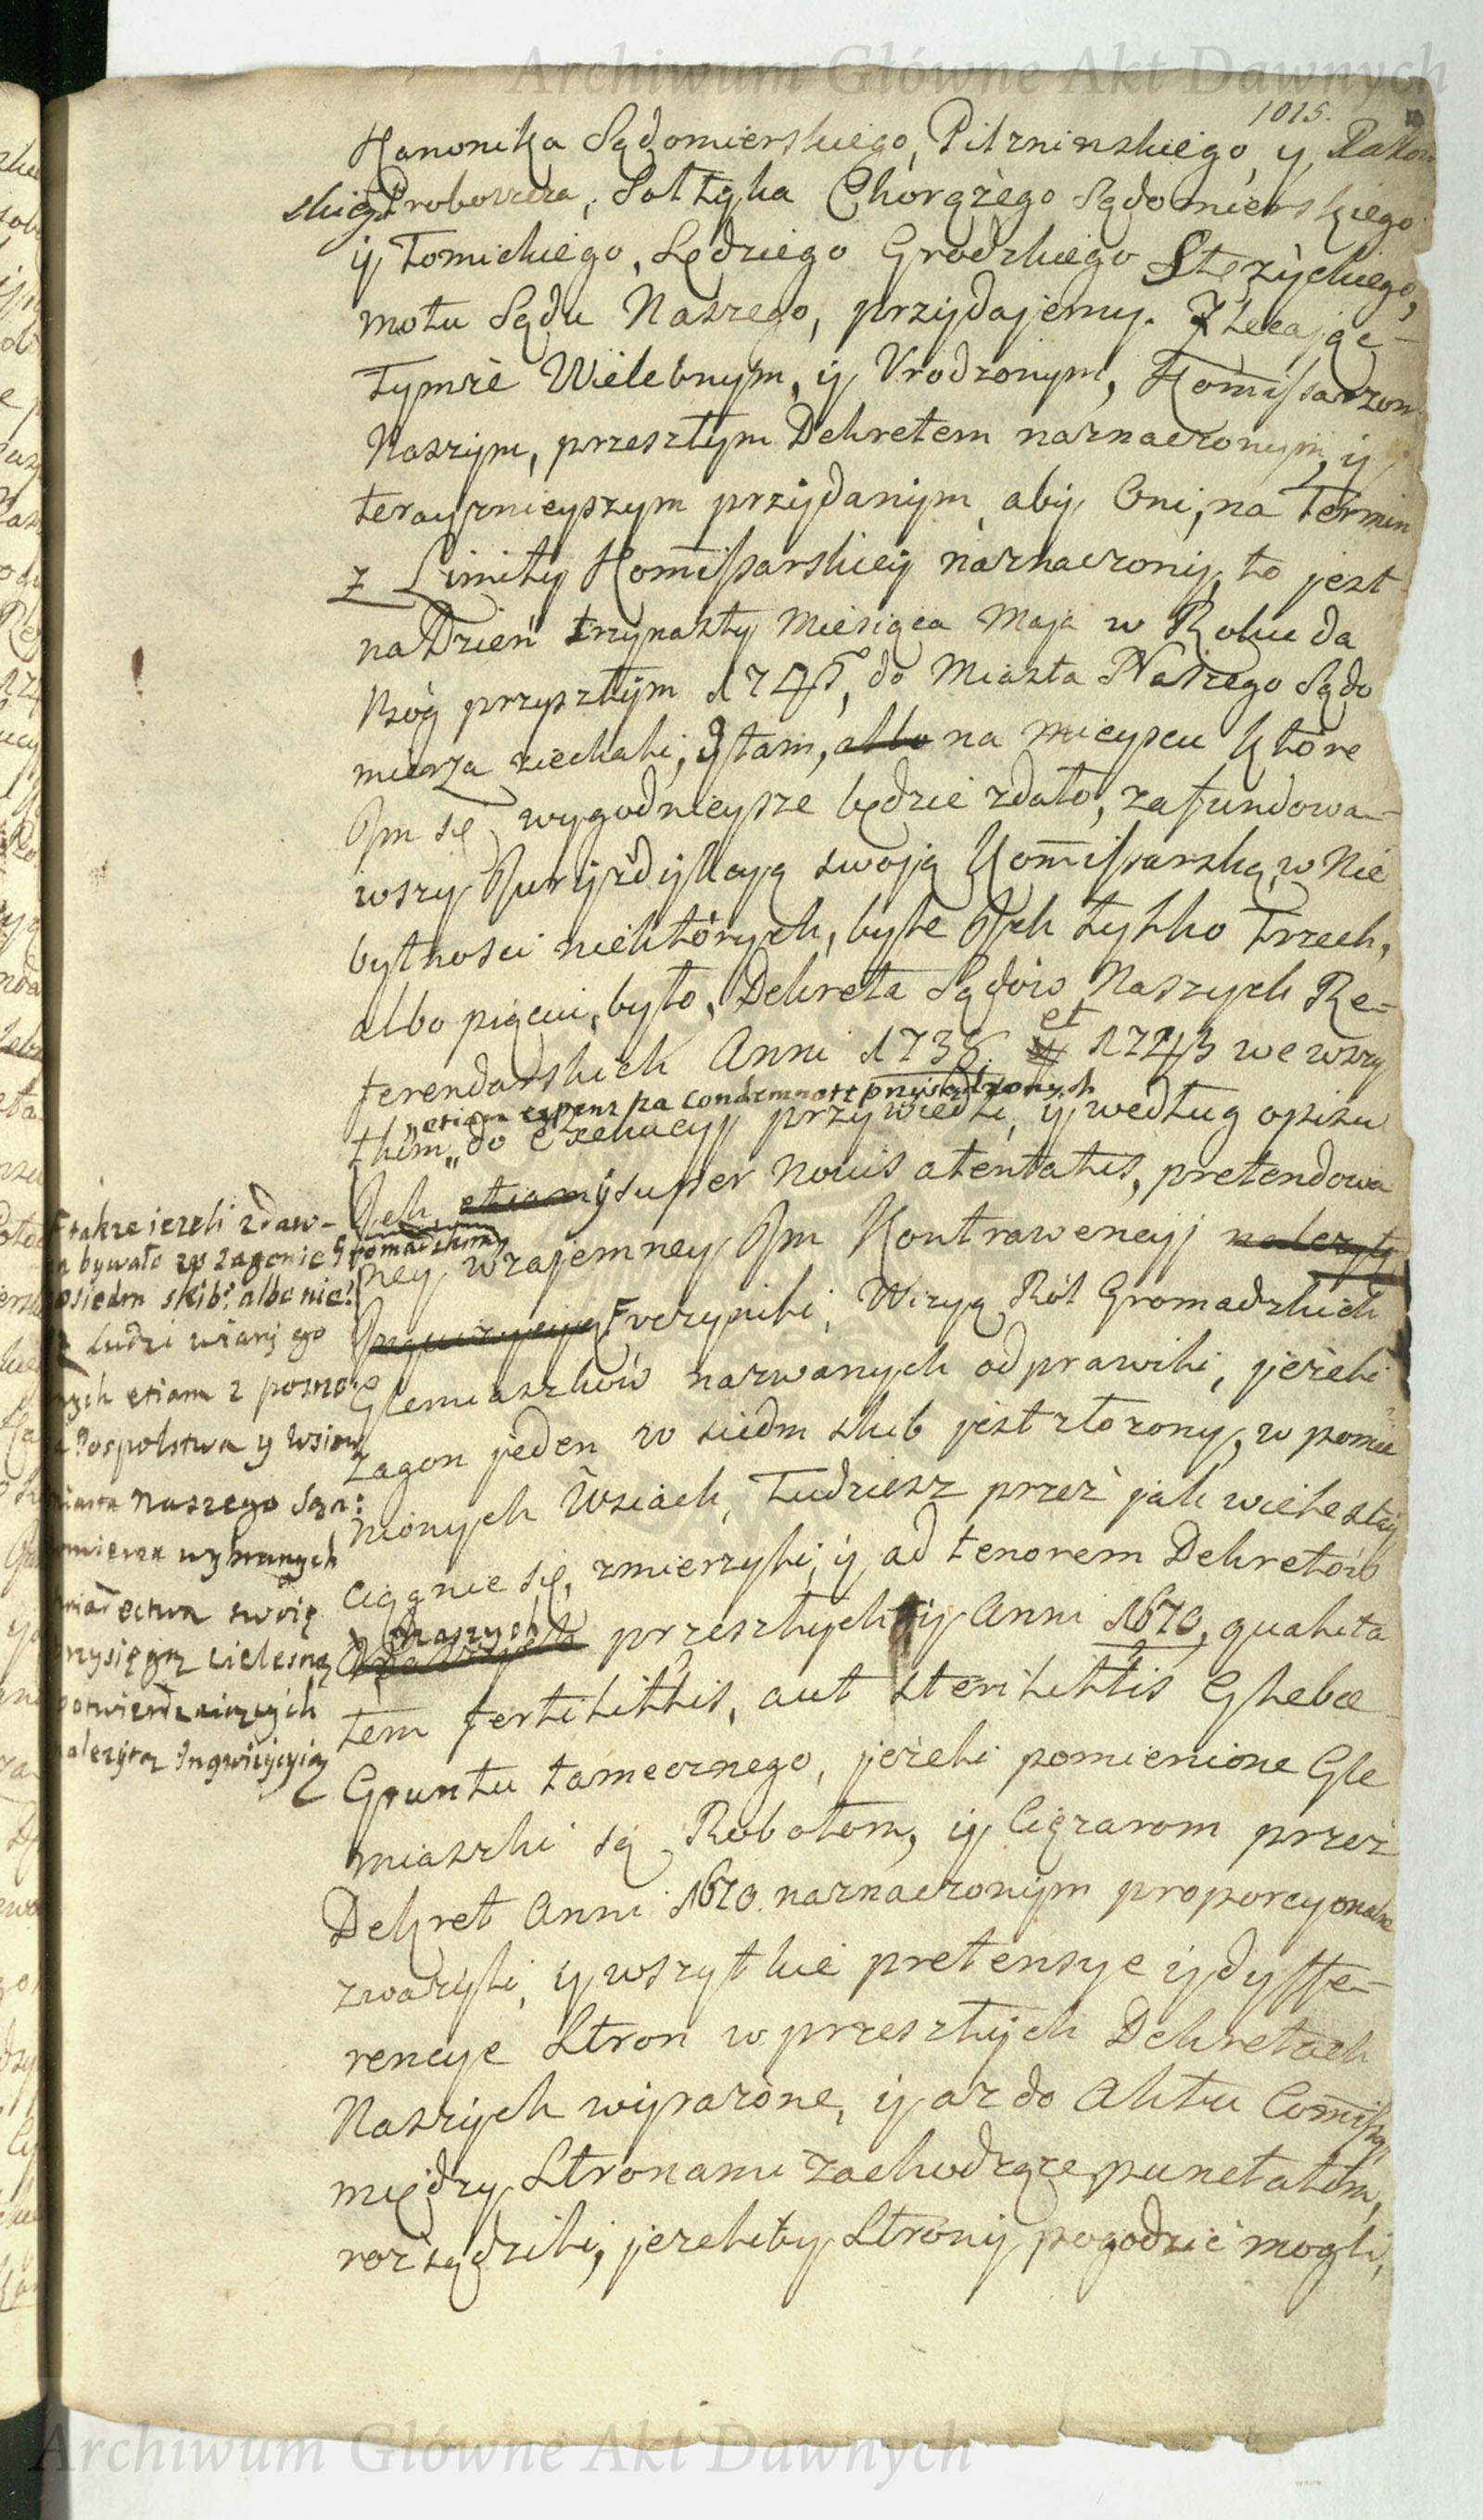 Archiwum Główne Akt Dawnych
1015.
Kanonika Sądomierskiego, Pilznińskiego, y Rakow
skiego Proboszcza, Sołtyka Chorążego Sądomierskiego
ÿ Tomickiego, Sędziego Grodzkiego Stężyckiego,
motu Sądu Naszego, przÿdajemy. Zlecając
Tymże Wielebnym, ÿ Vrodzonym, Kom̃issarzom
Naszÿm, przeszłym Dekretem naznaczonym, ÿ
terayznieyszym przÿdanÿm, abÿ Oni, na Termin
z Limity Kom̃issarskieÿ naznaczonÿ, to jest
na Dzień trzynasty Miesiąca Maja w Roku da
Bóg przyszłÿm 1745, do Miasta Naszego Sądo
mierza ziechali, Ÿ tam, albo na mieyscu które
Jm się wygodnieysze będzie zdało, zafundowa-
wszy Jurÿzdÿkcyą swoją Kom̃issarską, w Nie
bytności niektórych, byle Jch tylko trzech,
albo pięciu, było, Dekreta Sądów Naszych Re-
ferendarskich Anni 1738. et 1743 we wszy
etiam expens za condemnate przysądzonych
tkim do Exekucyi przywiedli, ÿ według opisu
Jch, etiam ÿ super novis atentatis, pretendowa
Gromadzkim
ney wzajemney Jm Kontrawencyj należytą
Jnquizycyją F vczynili, Wizyą Ról Gromadzkich
Glemiaszków nazwanych odprawili, jeżeli
Zagon jeden w siedm skib jest złożony, w pomie
nionych Wsiach, Tudziesz przez jak wiele stay
ciągnie się, zmierzyli, ÿ ad tenorem Dekretów
Naszych
przeszłych ÿ Anni 1670, qualita
tem fertilitatis, aut sterilitatis Glebæ
Gruntu tamecznego, jeżeli pomienione Gle
miaszki są Robotom, ÿ Ciężarom przez
Dekret Anni 1670. naznaczonÿm proporcyonalne
zważyli, ÿ wszytkie pretensye ÿ dyffe-
rencye Stron w przeszłÿch Dekretach
Naszÿch wÿrażone, ÿ aż do Aktu Com̃issÿi
między Stronami zachodzące punctatim,
rozsądzili, jeżeliby Stronÿ pogodzić mogli,
F takze iezeli zdaw-
bywało w zagonie
osiedm skib? albo nie?
ludzi wiary go
nych etiam z pozna
Pospolstwa y Wsiow
miasta Naszego Sąn:
omierza wybranych
wiadectwa swoię
rzysięgą cielesną
potwierdzaiących
należytą Inqwizycyią
Archiwum Główne Akt Dawnych